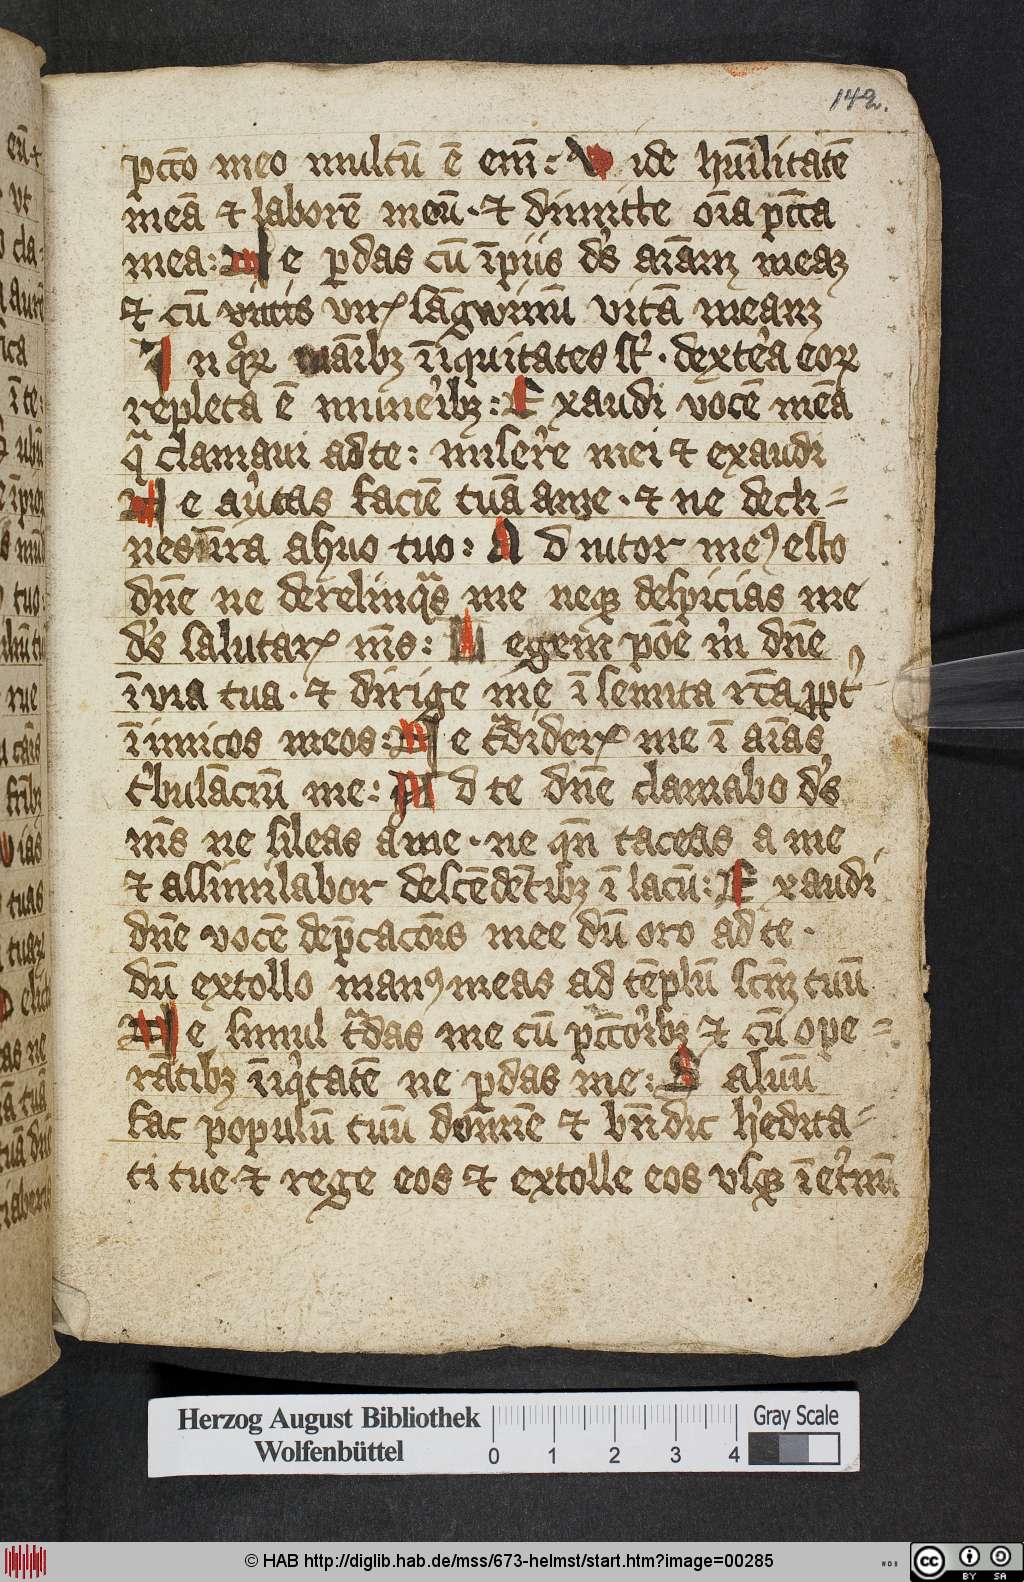 142.
pccō meo multū ē em̄: Vide hūilitatē
meā et laborē meū · et dimitte oīa pccā
mea: Ne pdas cū īpiis dˢ aīam meaꝫ
et cū viris sāgwinū vitā meam
In qͦꝝ māibꝫ īiquitates st̄ · dexteͬa eoꝝ
repleta ē muneͬibꝫ: Exaudi vocē meā
qᵃ clamaui ad te: miseͬre mei et exaudi
Ne aūtas faciē tuā a me · et ne decli=
nes īira a sͬuo tuo: Adiutor meꝰ esto
dn̄e ne derelinqᵃs me neqꝫ despicias me
dˢ salutarꝭ mˢ: Legem pōe mͥ dn̄e
ī via tua · et dirige me ī semita rc̄a ꝓpt̉
īimicos meos: Ne tᵃdiderꝭ me ī aīas
tͥbulāciū me: Ad te dn̄e clamabo dˢ
mˢ ne sileas a me · ne qn̄ taceas a me
et assimilabor descēdētibꝫ ī lacū: Exaudi
dn̄e vocē dep̄cacōis mee dū oro ad te ·
dū extollo manꝰ meas ad tēplū scm̄ tuū
Ne simul tᵃdas me cū pccōribꝫ et cū ope=
rātibꝫ īiqͥtatē ne pdas me: Saluū
fac populū tuū domīe et bn̄dic hͤdita=
ti tue · et rege eos et extolle eos usqꝫ ī et̉nū
Herzog August Bibliothek
Wolfenbüttel
0 1 2 3 4
Gray Scale
© HAB http://diglib.hab.de/mss/673-helmst/start.htm?image=00285
BY SA